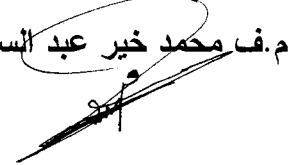 م.ف محمد خير عبد الس